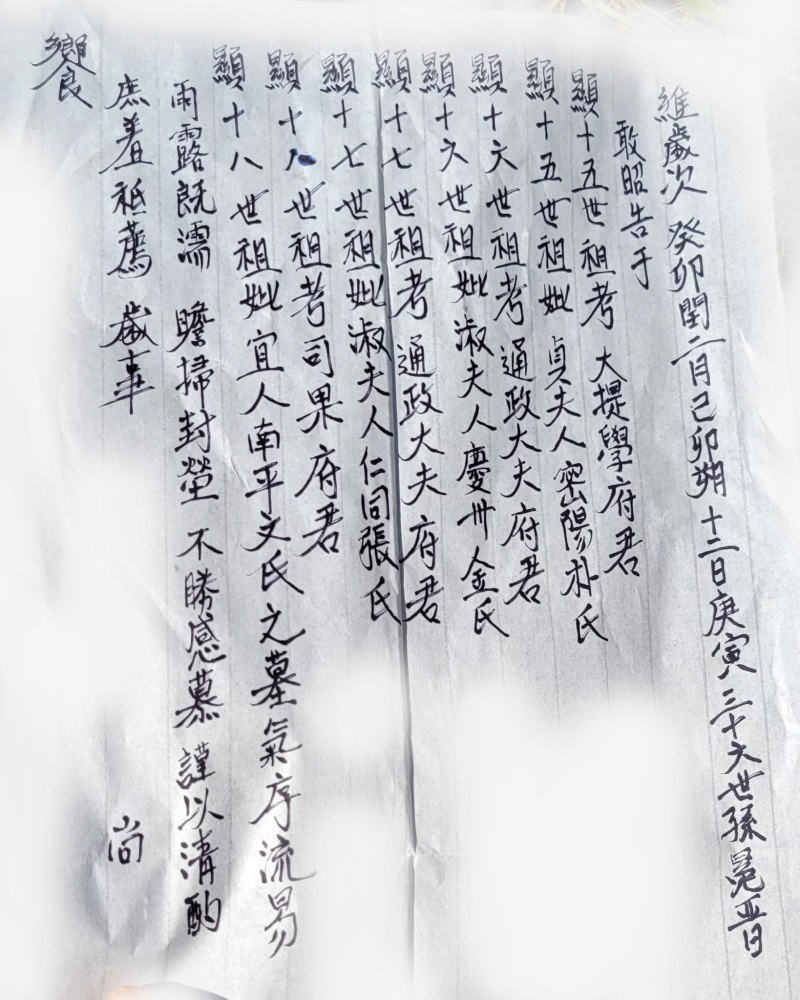 維歲次 癸卯閏二月己卯朔 十二日庚寅 三十六世孫 冕晋
敢昭告于
顯十五世祖考 大提學府君
顯十五世祖妣 貞夫人密陽朴氏
顯十六世祖考 通政大夫府君
顯十六世祖妣 淑夫人慶州金氏
顯十七世祖考 通政大夫府君
顯十七世祖妣 淑夫人仁同張氏
顯十八世祖考 司果府君
顯十八世祖妣 宜人南平文氏之墓 氣序流易
雨露旣濡 瞻掃封塋 不勝感慕 謹以清酌
庶羞祗薦 歲事 尚
饗